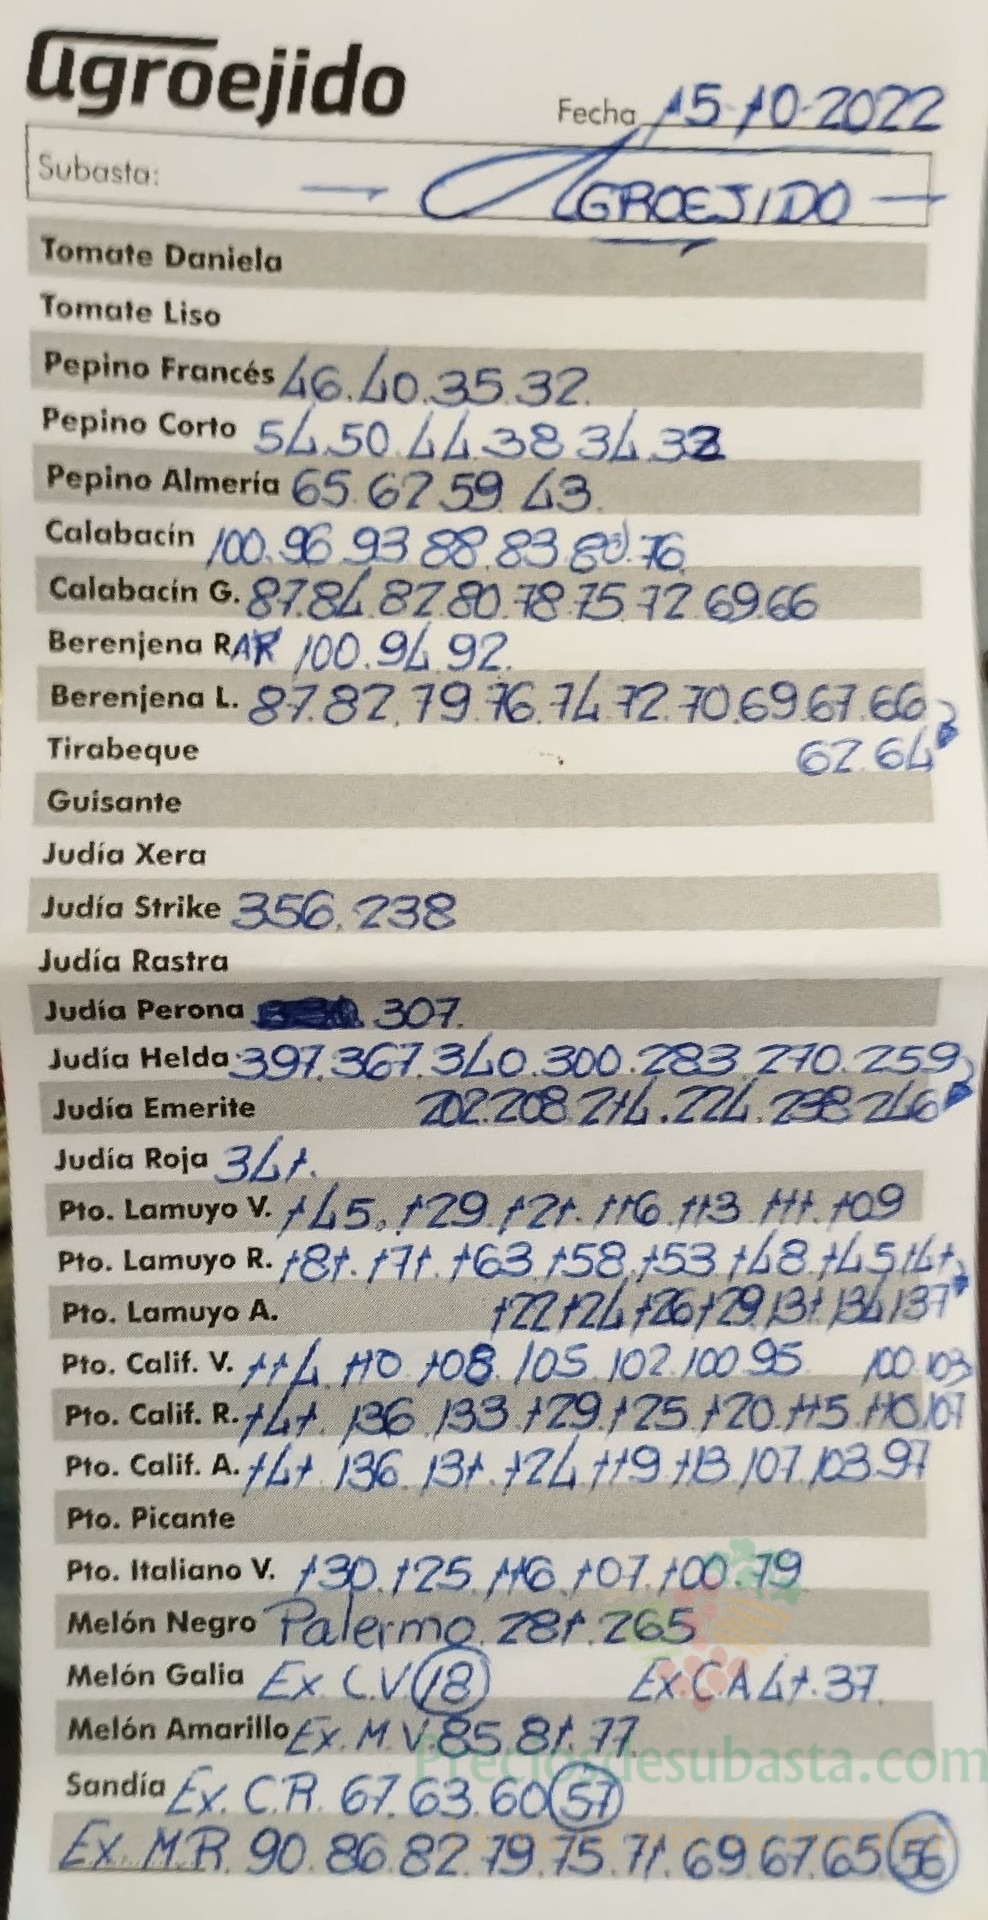 agroejido
Fecha 15-10-2022
Subasta: — AGROEJIDO —
Tomate Daniela
Tomate Liso
Pepino Francés 46.40.35.32.
Pepino Corto 54.50.44.38.34.32
Pepino Almería 65.62.59.43.
Calabacín 100.96.93.88.83.80.76.
Calabacín G. 87.84.82.80.78.75.72.69.66
Berenjena RAR 100.94.92.
Berenjena L. 87.82.79.76.74.72.70.69.67.66
Tirabeque 62.64
Guisante
Judía Xera
Judía Strike 356.238
Judía Rastra
Judía Perona 307.
Judía Helda 397.367.340.300.283.270.259
Judía Emerite 202.208.214.224.238.246
Judía Roja 341.
Pto. Lamuyo V. 145.129.121.116.113.111.109
Pto. Lamuyo R. 181.171.163.158.153.148.145.141
Pto. Lamuyo A. 122.124.126.129.131.134.137
Pto. Calif. V. 114.110.108.105.102.100.95 100.103
Pto. Calif. R. 141.136.133.129.125.120.115.110.107
Pto. Calif. A. 141.136.131.124.119.113.107.103.97
Pto. Picante
Pto. Italiano V. 130.125.116.107.100.79
Melón Negro Palermo. 281.265
Melón Galia Ex. C.V. 18 Ex.C.A 41.37.
Melón Amarillo Ex. M.V. 85.81.77.
Preciosdesubasta.com
Sandía Ex. C.R. 67.63.60 57
Ex. M.R. 90.86.82.79.75.71.69.67.65 56